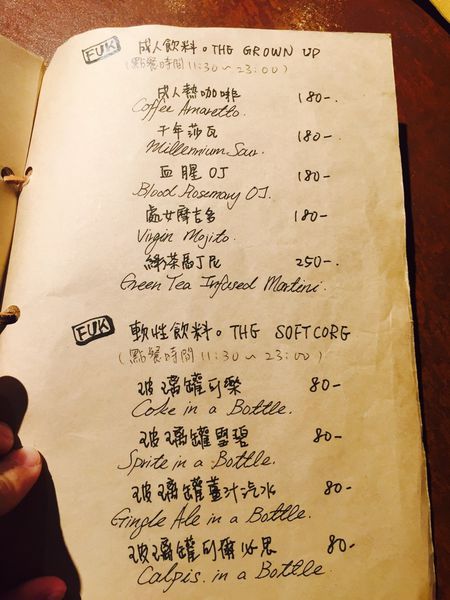 FUK 成人飲料。THE GROWN UP
(點餐時間 11:30~23:00)
成人熱咖啡 180-.
Coffee Amaretto.
千年莎瓦 180-.
Millennium Sour.
血腥OJ 180-.
Blood Rosemary OJ.
處女摩吉多 180-.
Virgin Mojito.
綠茶馬丁尼 250-.
Green Tea Infused Martini.
FUK 軟性飲料。THE SOFTCORE
(點餐時間 11:30~23:00)
玻璃罐可樂 80-
Coke in a Bottle.
玻璃罐雪碧 80-
Sprite in a Bottle.
玻璃罐薑汁汽水 80-
Gingle Ale in a Bottle.
玻璃罐可爾必思 80-
Calpis. in a Bottle.